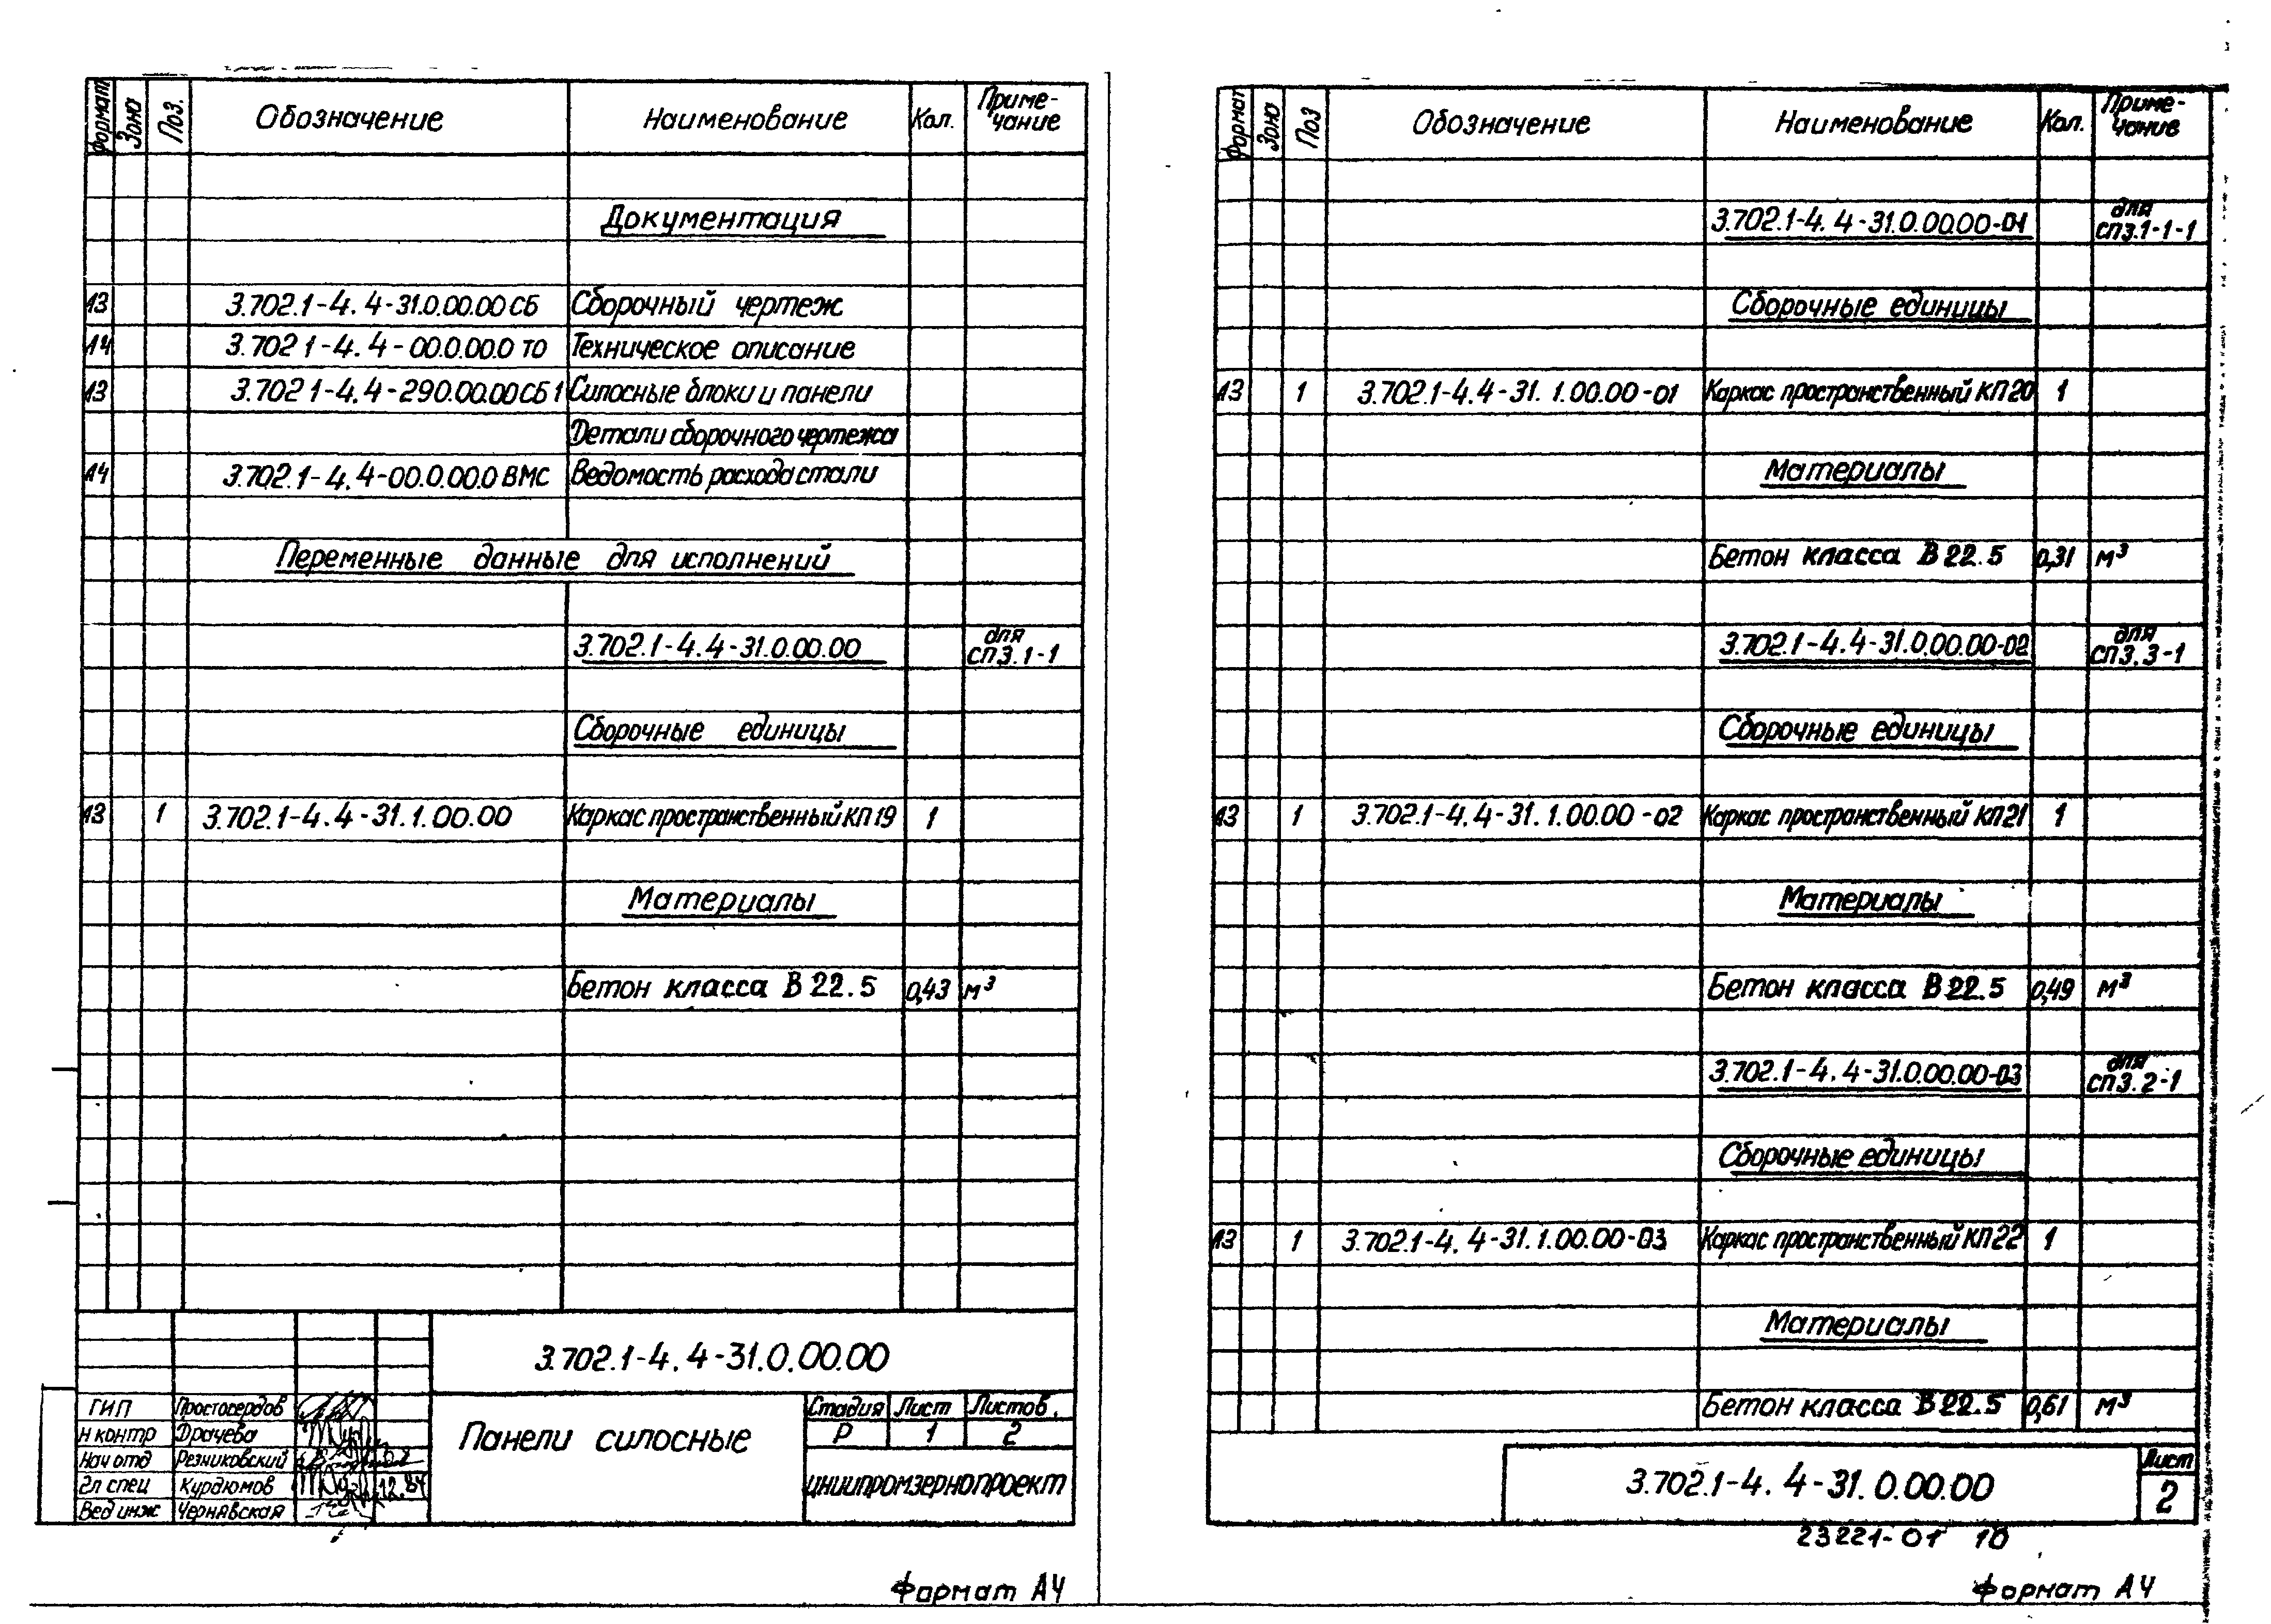 Формат Зона Поз. Обозначение Наименование Кол. Приме-
чание
Документация
А3 3.702.1-4.4-31.0.00.00 СБ Сборочный чертеж
А4 3.702 1-4.4-00.0.00.0 ТО Техническое описание
А3 3.702 1-4.4-290.00.00 СБ 1 Силосные блоки и панели
Детали сборочного чертежа
А4 3.702.1-4.4-00.0.00.0 ВМС Ведомость расхода стали
Переменные данные для исполнений
3.702.1-4.4-31.0.00.00 для
СП3.1-1
Сборочные единицы
А3 1 3.702.1-4.4-31.1.00.00 Каркас пространственный КП19 1
Материалы
Бетон класса В 22.5 0,43 м³
3.702.1-4.4-31.0.00.00
ГИП Простосердов
Н контр Драчева
Нач отд Резниковский
Гл спец Курдюмов 12.84
Вед инж Чернявская
Панели силосные
Стадия Лист Листов
Р 1 2
ЦНИИПРОМЗЕРНОПРОЕКТ
Формат А4
Формат Зона Поз Обозначение Наименование Кол. Приме-
чание
3.702.1-4.4-31.0.00.00-01 для
СП3.1-1-1
Сборочные единицы
А3 1 3.702.1-4.4-31.1.00.00-01 Каркас пространственный КП20 1
Материалы
Бетон класса В 22.5 0,31 м³
3.702.1-4.4-31.0.00.00-02 для
СП3.3-1
Сборочные единицы
А3 1 3.702.1-4.4-31.1.00.00-02 Каркас пространственный КП21 1
Материалы
Бетон класса В 22.5 0,49 м³
3.702.1-4.4-31.0.00.00-03 для
СП3.2-1
Сборочные единицы
А3 1 3.702.1-4.4-31.1.00.00-03 Каркас пространственный КП22 1
Материалы
Бетон класса В 22.5 0,61 м³
3.702.1-4.4-31.0.00.00
Лист
2
23221-01 10
Формат А4